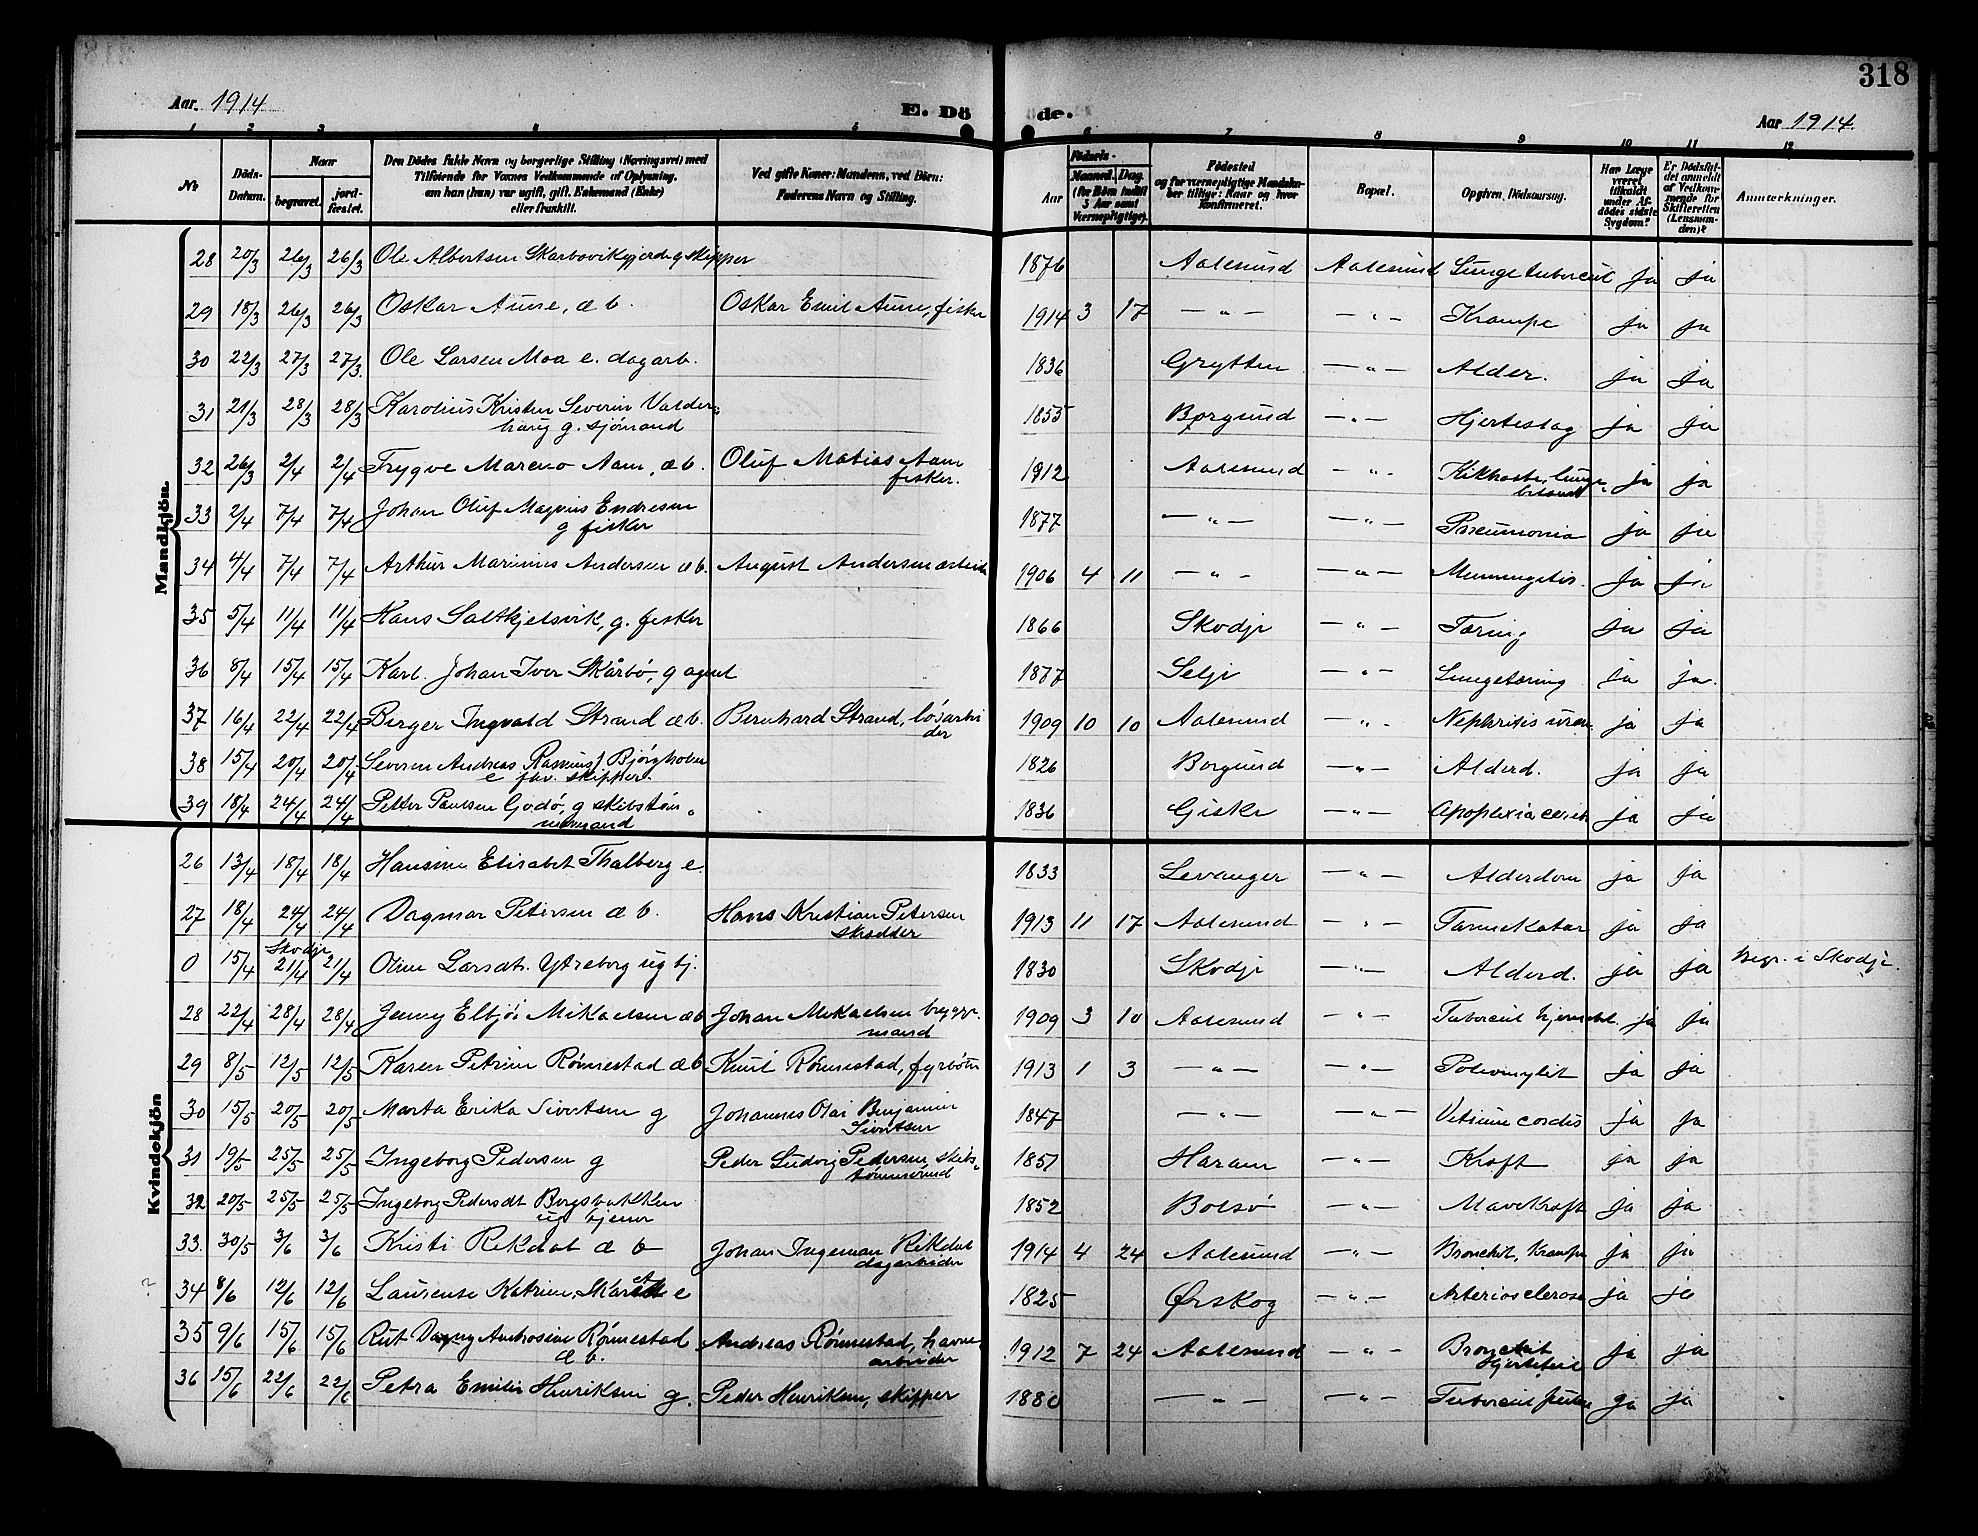 318
Aar. 1914 E. Dö de. Aar 1914.
1 2 3 4 5 6 7 8 9 10 11 12
No
Döds-Datum.
Naar
begravet.
jordfæstet.
Den Dödes fulde Navn og borgerlige Stilling (Næringsvei) med
Tilföiende for Voxnes Vedkommende af Oplysning,
om han (hun) var ugift, gift, Enkemand (Enke)
eller fraskilt.
Ved gifte Koner: Mandens, ved Börn:
Faderens Navn og Stilling.
Födsels-
Aar
Maaned. Dag.
(for Börn indtil
5 Aar samt
Værnepligtige).
Födested
og for værnepligtige Mandskaber tillige: Naar og hvor
konfirmeret.
Bopæl.
Opgiven Dödsaarsag.
Har Læge
været
tilkaldt
under Afdödes sidste
Sygdom?
Er Dödsfaldet anmeldt
af Vedkommende for
Skifteretten
(Lensmanden)?
Anmerkninger.
Mandkjön.
28 20/3 26/3 26/3 Ole Albertsen Skarbøvikgjerde g skipper 1876 Aalesund Aalesund Lungetubercul ja ja
29 18/3 26/3 26/3 Oskar Aune, æ b. Oskar Emil Aune, fisker 1914 3 17 — " — — " — Krampe ja ja
30 22/3 27/3 27/3. Ole Larsen Moa e. dagarb. 1836 Grytten — " — Alder. ja ja
31 21/3 28/3 28/3 Karolius Kristen Severin Valder-
haug g. sjømand 1855 Borgund — " — Hjerteslag ja ja
32 26/3 2/4 2/4 Trygve Mareno Aam, æ b. Oluf Matias Aam
fisker. 1912 Aalesund — " — Kikhoste, lunge-
betænd ja ja
33 2/4 7/4 7/4 Johan Oluf Magnus Endresen
g fisker 1877 — " — — " — Pneumonia ja ja
34 4/4 7/4 7/4 Arthur Marinius Andersen æ b. August Andersen arbeid 1906 4 11 — " — — " — Menningetis. ja ja
35 5/4 11/4 11/4 Hans Saltkjelsvik, g. fisker 1866 Skodje — " — Tæring ja ja
36 8/4 15/4 15/4 Karl Johan Iver Skårbø, g agent 1877 Selje — " — Lungetæring ja ja.
37 16/4 22/4 22/4 Birger Ingvald Strand æ b. Bernhard Strand, løsarbei
der 1909 10 10 Aalesund — " — Nephritis uræm ja ja
38 15/4 20/4 20/4 Severin Andreas Rasmus Bjørgholm
e fhv. skipper. 1826 Borgund — " — Alderd. ja ja
39 18/4 24/4 24/4 Petter Paulsen Godø, g skibstøm-
mermand 1836 Giske — " — Apoplexia cereb ja ja
Kvindekjön
26 13/4 18/4 18/4 Hansine Elisabet Thalberg e. 1833 Levanger — " — Alderdom ja ja
27 18/4 24/4 24/4 Dagmar Petersen æ b. Hans Kristian Petersen
skrædder 1913 11 17 Aalesund — " — Tarmekatar ja ja
Skodje
0 15/4 21/4 21/4 Oline Larsdt. Ytreborg ug tj. 1830 Skodje — " — Alderd. ja ja Begr. i Skodje.
28 22/4 28/4 28/4 Jenny Elbjør Mikaelsen æ b Johan Mikaelsen brygge-
mand 1909 3 10 Aalesund — " — Tubercul hjernebet. ja ja
29 8/5 12/5 12/5 Karen Petrine Rønnestad æ b Knut Rønnestad, fyrbøter 1913 1 3 — " — — " — Poliomylit ja ja
30 15/5 20/5 20/5 Marta Erika Sivertsen g Johannes Olai Benjamin
Sivertsen 1847 — " — — " — Vitium cordis ja ja
31 19/5 25/5 25/5 Ingeborg Pedersen g Peder Ludvig Pedersen, skibs-
tømmermd 1851 Haram — " — Kræft ja ja
32 20/5 25/5 25/5 Ingeborg Pedersdt Bergsbakken
ug tjener 1852 Bolsø — " — Mavekræft ja ja
33. 30/5 3/6 3/6 Kristi Rekdal æ b Johan Ingeman Rekdal
dagarbeider 1914 4 24 Aalesund — " — Bronchit, Krampe ja ja
34 8/6 12/6 12/6 Laurense Katrine e 1825 Ørskog — " — Arteriosclerose ja ja
35 9/6 15/6 15/6 Rut Dagny Ambrosine Rønnestad
æ b. Andreas Rønnestad, havne-
arbeider 1912 7 24 Aalesund — " — Bronchit
Hjertefeil ja ja
36 15/6 22/6 22/6 Petra Emilie Henriksen g. Peder Henriksen, skipper 1880 — " — — " — Tubercul ja ja